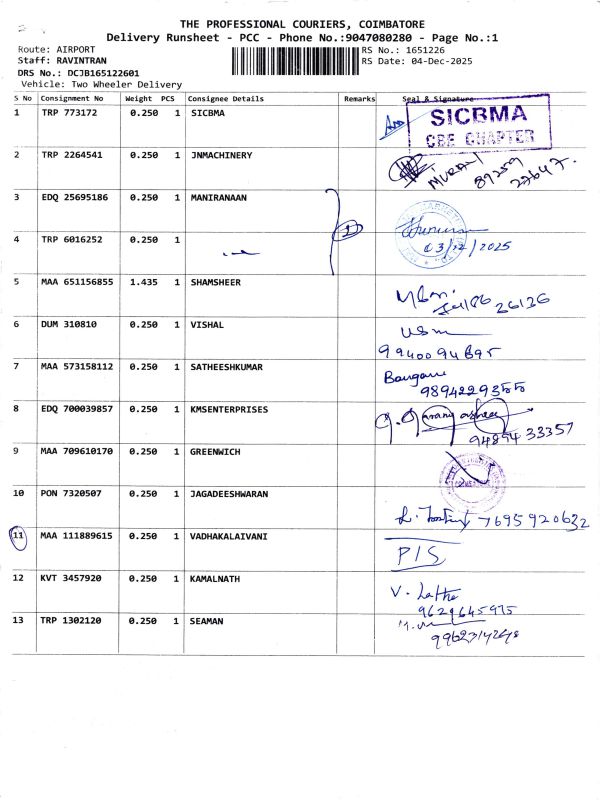 THE PROFESSIONAL COURIERS, COIMBATORE
Delivery Runsheet - PCC - Phone No.:9047080280 - Page No.:1
Route: AIRPORT RS No.: 1651226
Staff: RAVINTRAN RS Date: 04-Dec-2025
DRS No.: DCJB165122601
Vehicle: Two Wheeler Delivery
S No Consignment No Weight PCS Consignee Details Remarks Seal & Signature
1 TRP 773172 0.250 1 SICBMA
SICBMA
CBE CHAPTER
2 TRP 2264541 0.250 1 JNMACHINERY
MURALI
89259
27647.
3 EDQ 25695186 0.250 1 MANIRANAAN
2
4 TRP 6016252 0.250 1
03/12/2025
5 MAA 651156855 1.435 1 SHAMSHEER
26136
6 DUM 310810 0.250 1 VISHAL
7 MAA 573158112 0.250 1 SATHEESHKUMAR
9894229355
8 EDQ 700039857 0.250 1 KMSENTERPRISES
94894 33357
9 MAA 709610170 0.250 1 GREENWICH
10 PON 7320507 0.250 1 JAGADEESHWARAN
7695920632
11 MAA 111889615 0.250 1 VADHAKALAIVANI
P/S
12 KVT 3457920 0.250 1 KAMALNATH
V. Latha
9629645975
13 TRP 1302120 0.250 1 SEAMAN